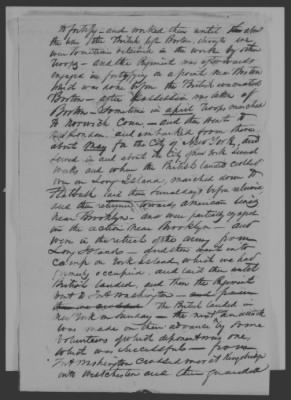 to fortify - and worked there until about
the time the British left Boston though we
were sometimes relieved in the work by other
troops - and the Regiment was afterwards
engaged in fortifying on a point near Boston
before the British evacuated
Boston - after was taken of
Boston - Sometime in April troops marched
to Norwich Conn - and then went to
and embarked from there
about May for the City of New York, and
served in and about the City of New York several
weeks and when the British landed
on Long Island, marched down to
Flatbush laid there several days before
and then returned towards American lines
near Brooklyn - and were partially engaged
in the action near Brooklyn - and
were in the retreat of the army from
Long Island - and then went into
Camp on York Island which we had
formerly occupied, and laid there until
British landed, and then the Regiment
went to Fort Washington -
The British landed in
New York on Sunday - the next an attack
was made on their advance by some
Volunteers of which deponent was one,
which was successful - from
Fort Washington crossed over at Kingsbridge
into Westchester and then